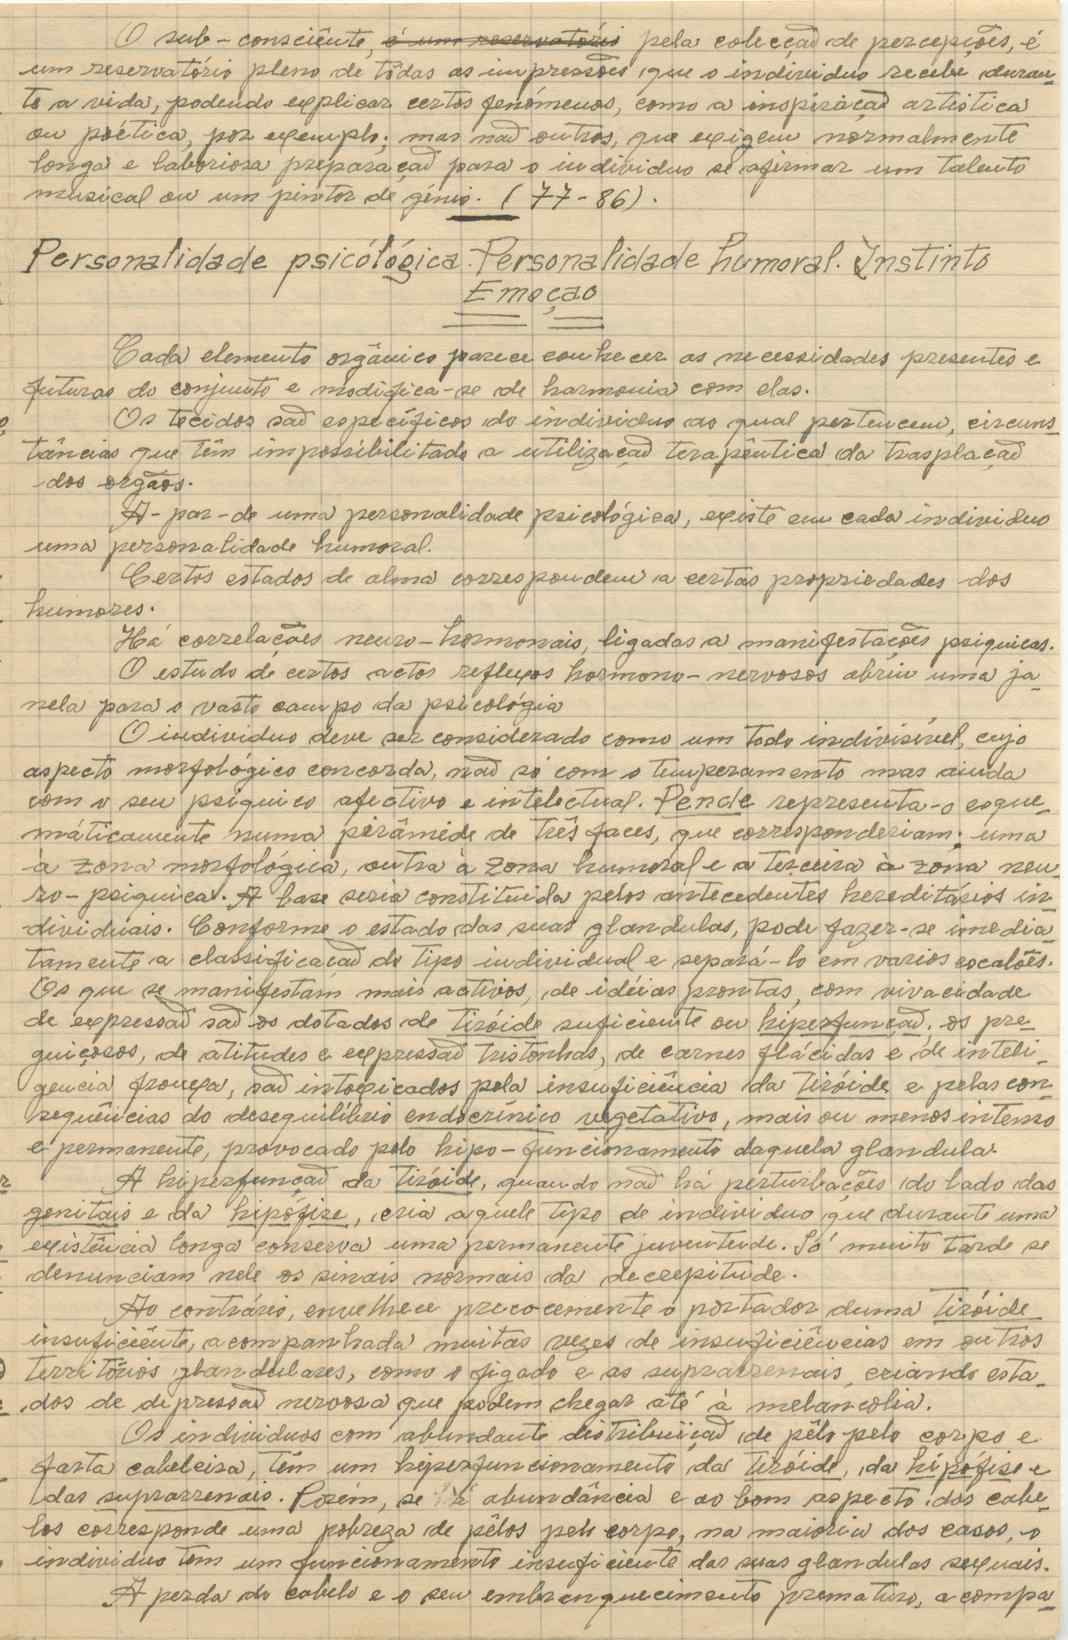 O sub-consciênte, é um reservatório pela colecção de percepções, é
um reservatório pleno de tôdas as impressões que o individuo recebe duran-
te a vida, podendo explicar certos fenómenos, como a inspiração artistica
ou poética, por exemplo; mas não outros, que exigem normalmente
longa e laboriosa preparação para o individuo se afirmar um talento
musical ou um pintor de génio. (77-86).
Personalidade psicológica. Personalidade humoral. Instinto
Emoção
Cada elemento orgânico parece conhecer as necessidades presentes e
futuras do conjunto e modifica-se de harmonia com elas.
Os tecidos são específicos do individuo ao qual pertencem, circuns-
tâncias que têm impossibilitado a utilização terapêutica da trasplação
dos orgãos.
A-par-de uma personalidade psicológica, existe em cada individuo
uma personalidade humoral.
Certos estados de alma correspondem a certas propriedades dos
humores.
Há correlações neuro-hormonais, ligadas a manifestações psiquicas.
O estudo de certos actos reflexos hormono-nervosos abriu uma ja-
nela para o vasto campo da psicológia
O individuo deve ser considerado como um todo indivisível, cujo
aspecto morfológico concorda, não só com o temperamento mas ainda
com o seu psiquico afectivo e intelectual. Pende representa-o esque-
máticamente numa pirâmide de três faces, que corresponderiam: uma
à zona morfológica, outra à zona humoral e a terceira à zona neu
ro-psiquica. A base seria constituida pelos antecedentes hereditários in-
dividuais. Conforme o estado das suas glandulas, pode fazer-se imedia-
tamente a classificação do tipo individual e separá-lo em varios escalões.
Os que se manifestam mais activos, de idéias prontas, com vivacidade
de expressão são os dotados de tiróide suficiente ou hiperfunção. os pre-
guiçosos, de atitudes e expressão tristonhas, de carnes flácidas e de inteli-
gencia frouxa, são intoxicados pela insuficiência da tiróide e pelas con-
sequências do desequilíbrio endocrínico vegetativo, mais ou menos intenso
e permanente, provocado pelo hipo-funcionamento daquela glandula.
A hiperfunção da tiróide, quando não há perturbações do lado das
genitais e da hipófise, cria aquele tipo de individuo que durante uma
existência longa conserva uma permanente juventude. Só muito tarde se
denunciam nele os sinais normais da decrepitude.
Ao contrário, envelhece precocemente o portador duma tiróide
insuficiênte, acompanhada muitas vezes de insuficiências em outros
territórios glandulares, como o figado e as suprarrenais, criando esta-
dos de depressão nervosa que podem chegar até à melancolia.
Os individuos com abundante distribuição de pêlo pelo corpo e
farta cabeleira, têm um hiperfuncionamento da tiróide, da hipófise e
das suprarrenais. Porém, se à abundância e ao bom aspecto dos cabe-
los corresponde uma pobreza de pêlos pelo corpo, na maioria dos casos, o
individuo tem um funcionamento insuficiente das suas glandulas sexuais.
A perda do cabelo e o seu embranquecimento prematuro, acompa-